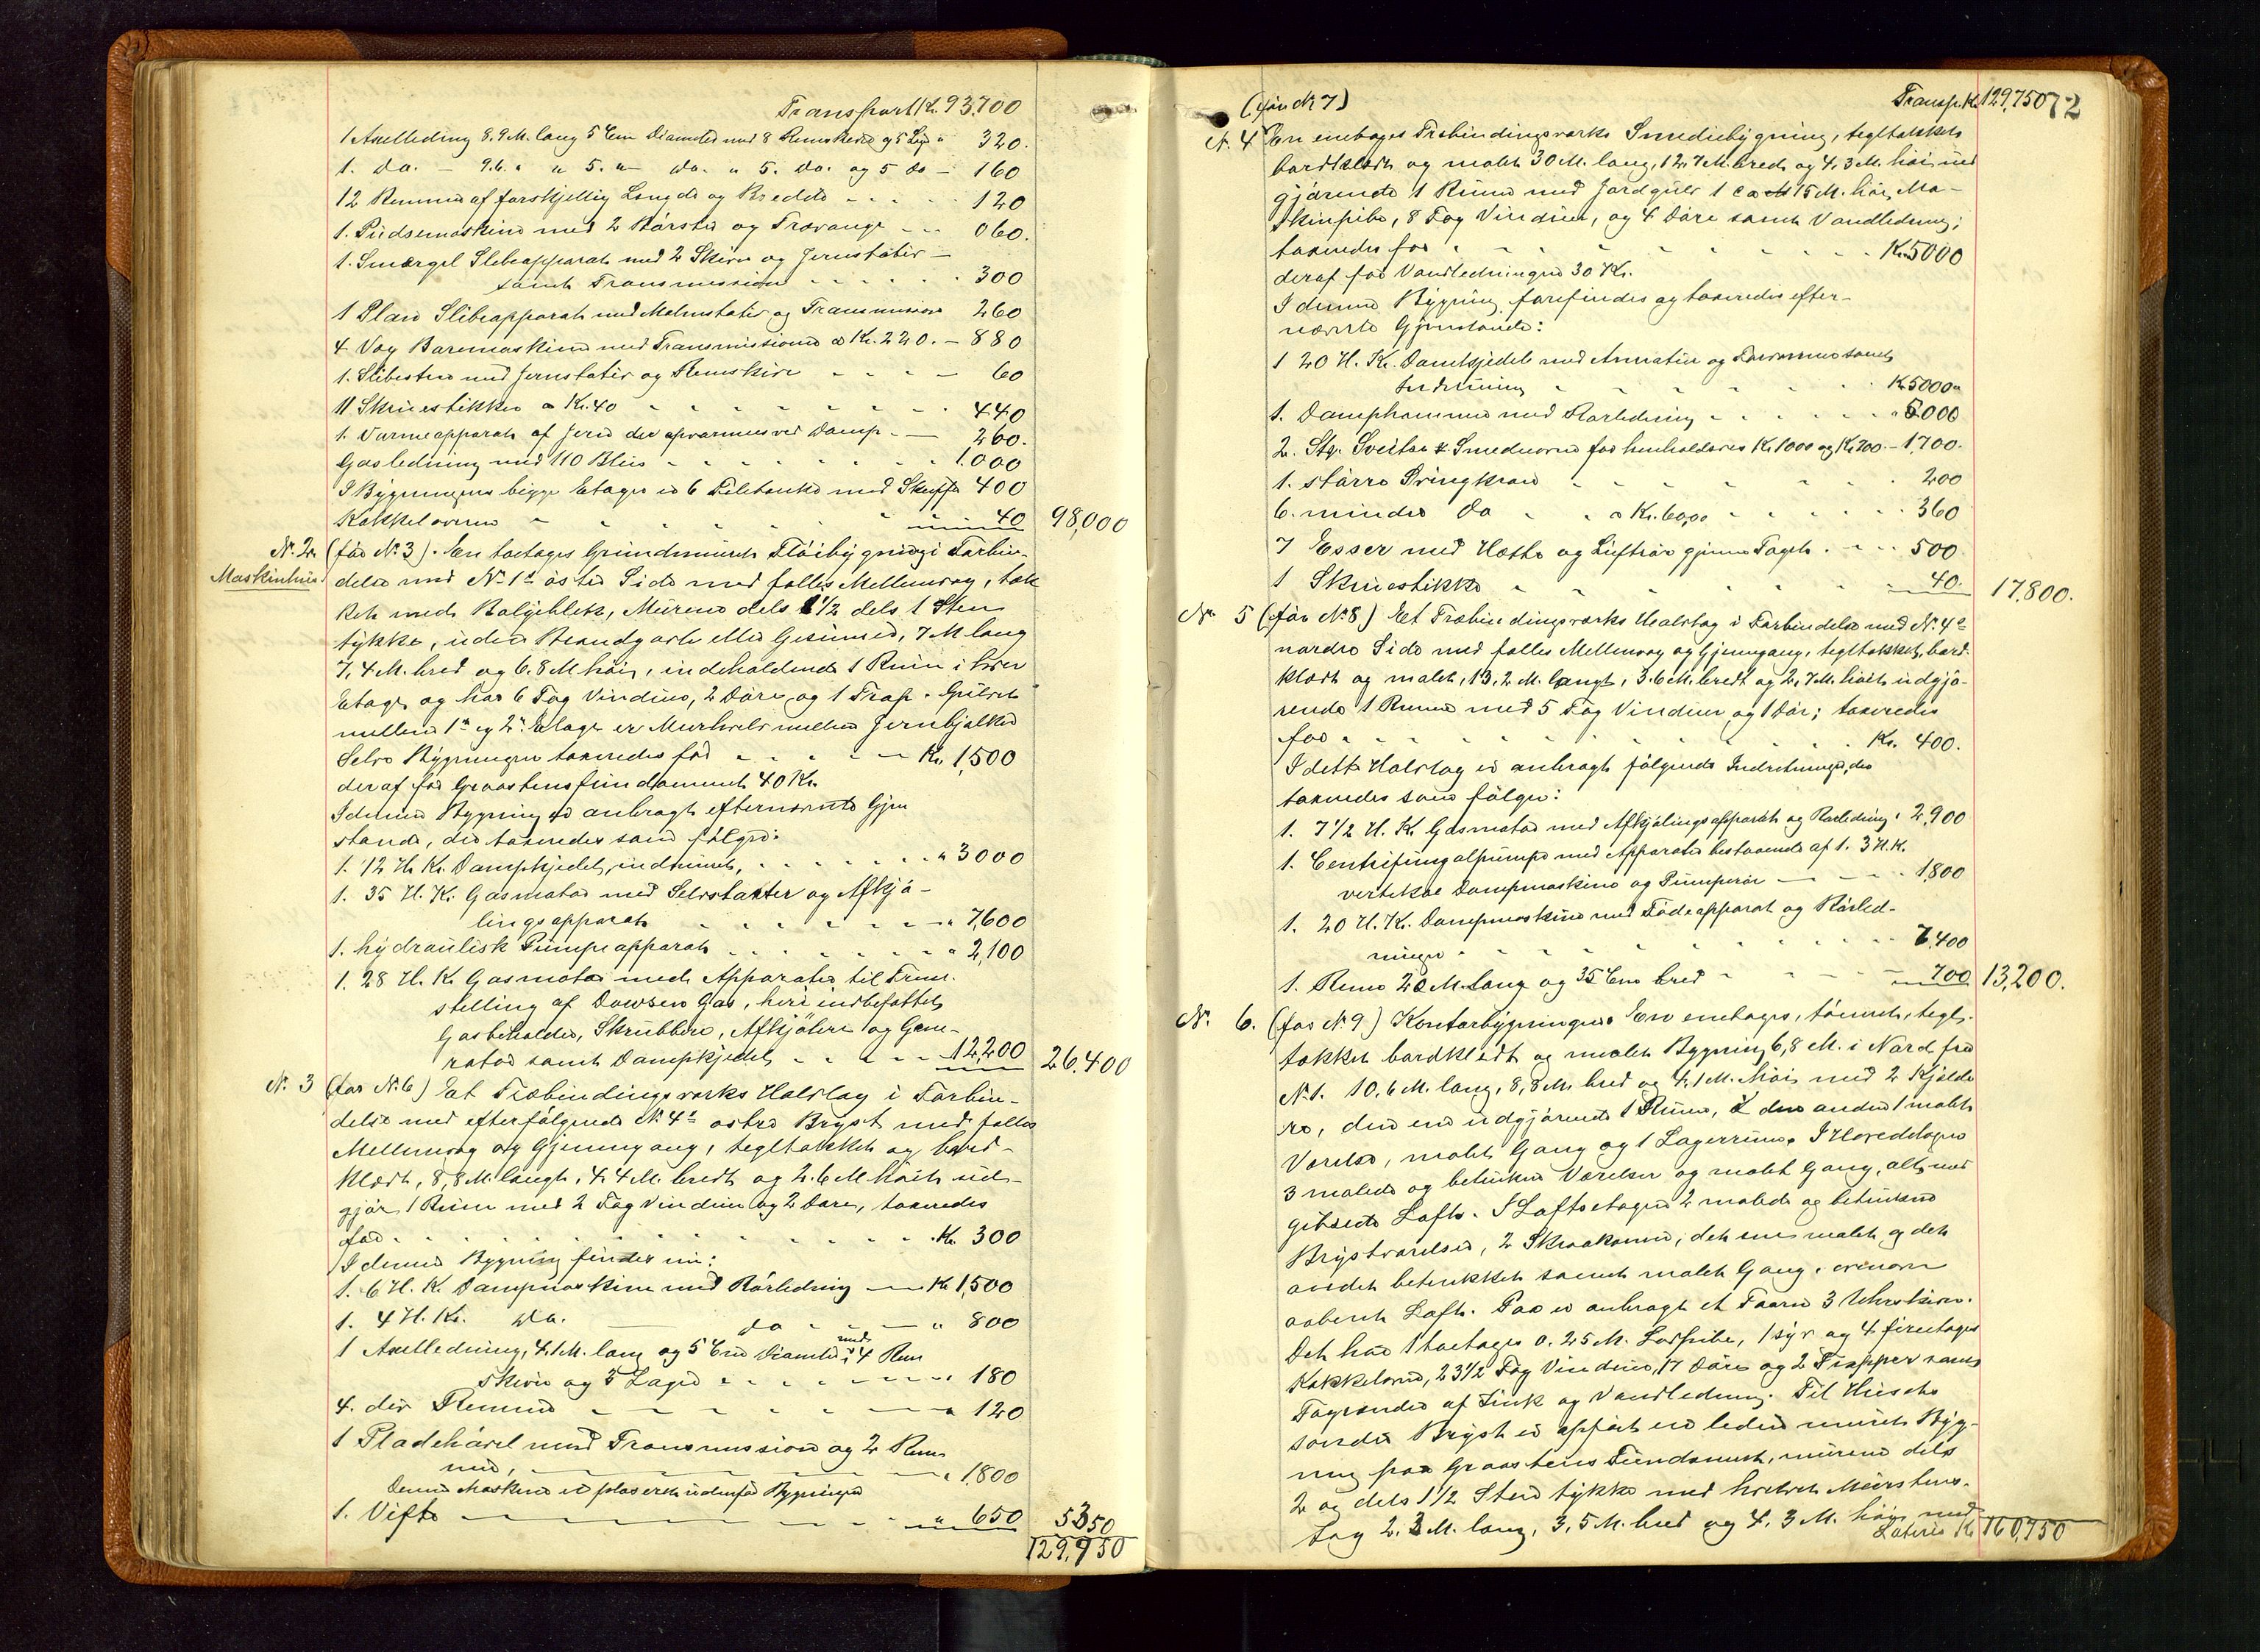 Transport Kr. 93,700
1 Axelledning 8.9 M. lang 5 Cm Diameter med 8 Remskiver og 5 Lager " 320.
1. Do. — 9.6. " " 5. " — Do. " 5. do. og 5 do — 160
12 Remme af forskjellig Længde og Bredde - - - - - 120
1. Pudsemaskine med 2 Børster og Trævange - - - 060.
1. Smergel Slibeapparat med 2 Skiver og Jernstativ —
samt Transmission - - - - - - 300
1 Plan Slibeapparat med Malmstativ og Transmission 260
4 Væg Boremaskiner med Transmissioner a Kr. 220. — 880
1. Slibesten med Jernstativ og Remskive - - - - 60
11 Skruestikker a Kr. 40 - - - - - - - - 440
1. Varmeapparat af Jern der opvarmes ved Damp - — 260.
Gasledning med 110 Blus - - - - - - - - 1,000
I Bygningens begge Etager er 6 Filebænke med Skuffer 400
Kakkelovne - - - - - - - 40 98,000
No. 2. (før No. 3). En toetages Grundmuret Fløibygning i Forbin-
Maskinhus
delse med No. 1s østre Side med fælles Mellemvæg, tæk
ket med Bølgeblik, Murene dels 1 1/2 dels 1 Sten
tykke, uden Brandgavle eller Gesimser, 7 M lang
7,4 M. bred og 6.8 M høi, indeholdende 1 Rum i hver
Etage og har 6 Fag Vinduer, 2 Døre og 1 Trap. Gulvet
mellem 1st og 2n Etage er Murhvelv mellem Jernbjælker
Selve Bygningen taxeredes for - - - - — Kr. 1,500
deraf for Graastensfundament 40 Kr.
I denne Bygning er anbragt efternævnte Gjen
stande, der taxeredes som følger:
1. 12 H. Kr. Dampkjedel, indmuret, - - - - - - " 3000
1. 35 H. K. Gasmotor med Selvstarter og Afkjø-
lingsapparat - - - - - - — " 7,600
1. hydraulisk Pumpeapparat - - - - - - - " 2,100
1. 28 H. K. Gasmotor med Apparater til Frem-
stilling af Dowson Gas, heri indbefattet
Gasbeholder, Skrubbere, Afkjølere og Gene-
rator samt Dampkjedel - - - - - 12,200 26,400
No. 3 (før No. 6) Et Træbindingsværks Halvtag i Forbin-
delse med efterfølgende No. 4s østre Bryst med fælles
Mellemvæg og Gjennemgang, tegltækket og bord-
klædt, 8,8 M. langt, 4,4 M. bredt og 2.6 M høit ud-
gjør 1 Rum med 2 Fag Vinduer og 2 Døre, taxeredes
for - - - - - - - - - - - Kr. 300
I denne Bygning findes nu:
1. 6 H. K. Dampmaskine med Rørledning — Kr 1,500
1. 4 H. Kr. Do. — do - - — " 800
1 Axelledning, 4,1 M. lang og 5 Cm Diameter, med 4 Rem
skiver og 5 Lager - - - - - - " 180
4. div Remme - - - - - " 120
1 Pladehøvel med Transmission og 2 Rem
mer, — — — " 1,800
Denne Maskine er placeret udenfor Bygningen
1. Vifte — — — - - " 650 5350
129,750

(før No 7) Transp. Kr 129,750 72
No. 4 En enetages Træbindingsværks Smediebygning, tegltækket
bordklædt og malet 30 M. lang, 12,7 M. bred og 4,3 M. høi ud
gjørende 1 Rum med Jordgulv 1 ca 15 M. høi Ma-
skinpibe, 8 Fag Vinduer, og 4 Døre samt Vandledning;
taxeredes for - - - - - - - - Kr. 5000
deraf for Vandledningen 30 Kr.
I denne Bygning forefindes og taxeredes efter-
nævnte Gjenstande:
1 20 H. Kr. Dampkjedel med Armatur og Forvarmer samt
Indmuring - - - - - - - Kr. 5000
1. Damphammer med Rørledning - - - - - " 5000
2. Stp. Sveise & Smedeovne for henholdsvis Kr 1000 og Kr 700. — 1,700.
1. større Svingkran - - - - - - 200
6. mindre do - - a Kr. 60,00 - - - - - 360
7 Esser med Hætte og Luftrør gjennem Taget - - - - 500
1 Skruestikke - - - - - - - 40. 17,800.
No. 5 (før No. 8) Et Træbindingsværks Halvtag i Forbindelse med No. 4s
nordre Side med fælles Mellemvæg og Gjennemgang, tegltækket, bord-
klædt og malet, 13,2 M. langt, 3.6 M. bredt og 2,7 M. høit udgjø-
rende 1 Rum med 5 Fag Vinduer og 1 Dør; taxeredes
for - - - - - - - - - - Kr. 400.
I dette Halvtag er anbragt følgende Indretninger, der
taxeredes som følger:
1. 7 1/2 H. K. Gasmotor med Afkjølingsapparat og Rørledning. 2,900
1. Centrifugalpumpe med Apparater bestaaende af 1. 3 H.K.
vertikal Dampmaskine og Pumperør — - - - 1,800
1. 20 H. K. Dampmaskine med Fødeapparat og Rørled-
ninger - - - - - - - - - 7,400
1. Rem 20 M. lang og 35 Cm bred - - - - — 700 13,200.
No. 6. (før No. 9) Kontorbygningen. En enetages, tømret, tegl-
tækket bordklædt og malet Bygning 6,8 M. i Nord fra
No. 1. 10,6 M. lang, 8,8 M. bred og 4,1 M. høi med 2 Kjælde
re, den ene udgjørende 1 Rum, i den anden 1 malet
Værelse, malet Gang og 1 Lagerrum. I Hovedetagen
3 malede og betrukne Værelser og malet Gang, alt med
gibsede Lofte. I Loftsetagen 2 malede og betrukne
Brystværelser, 2 Skraakamre, det ene malet og det
andet betrukket samt malet Gang, ovenover
aabent Loft. Paa er anbragt et Taarn 3 Uhrskiver.
Det har 1 toetages 0.25 M. Lodpibe, 1 syv og 4 fireetages
Kakkelovne, 23 1/2 Fag Vinduer, 17 Døre og 2 Trapper samt
Tagrender af Zink og Vandledning. Til Husets
søndre Bryst er opført en liden muret Byg-
ning paa Graastens Fundament, murene dels
2 og dels 1 1/2 Sten tykke med hvelvet Murstens-
tag 2.3 M. lang, 3,5 M. bred og 4,3 M. høi med
Lateris Kr 160,750